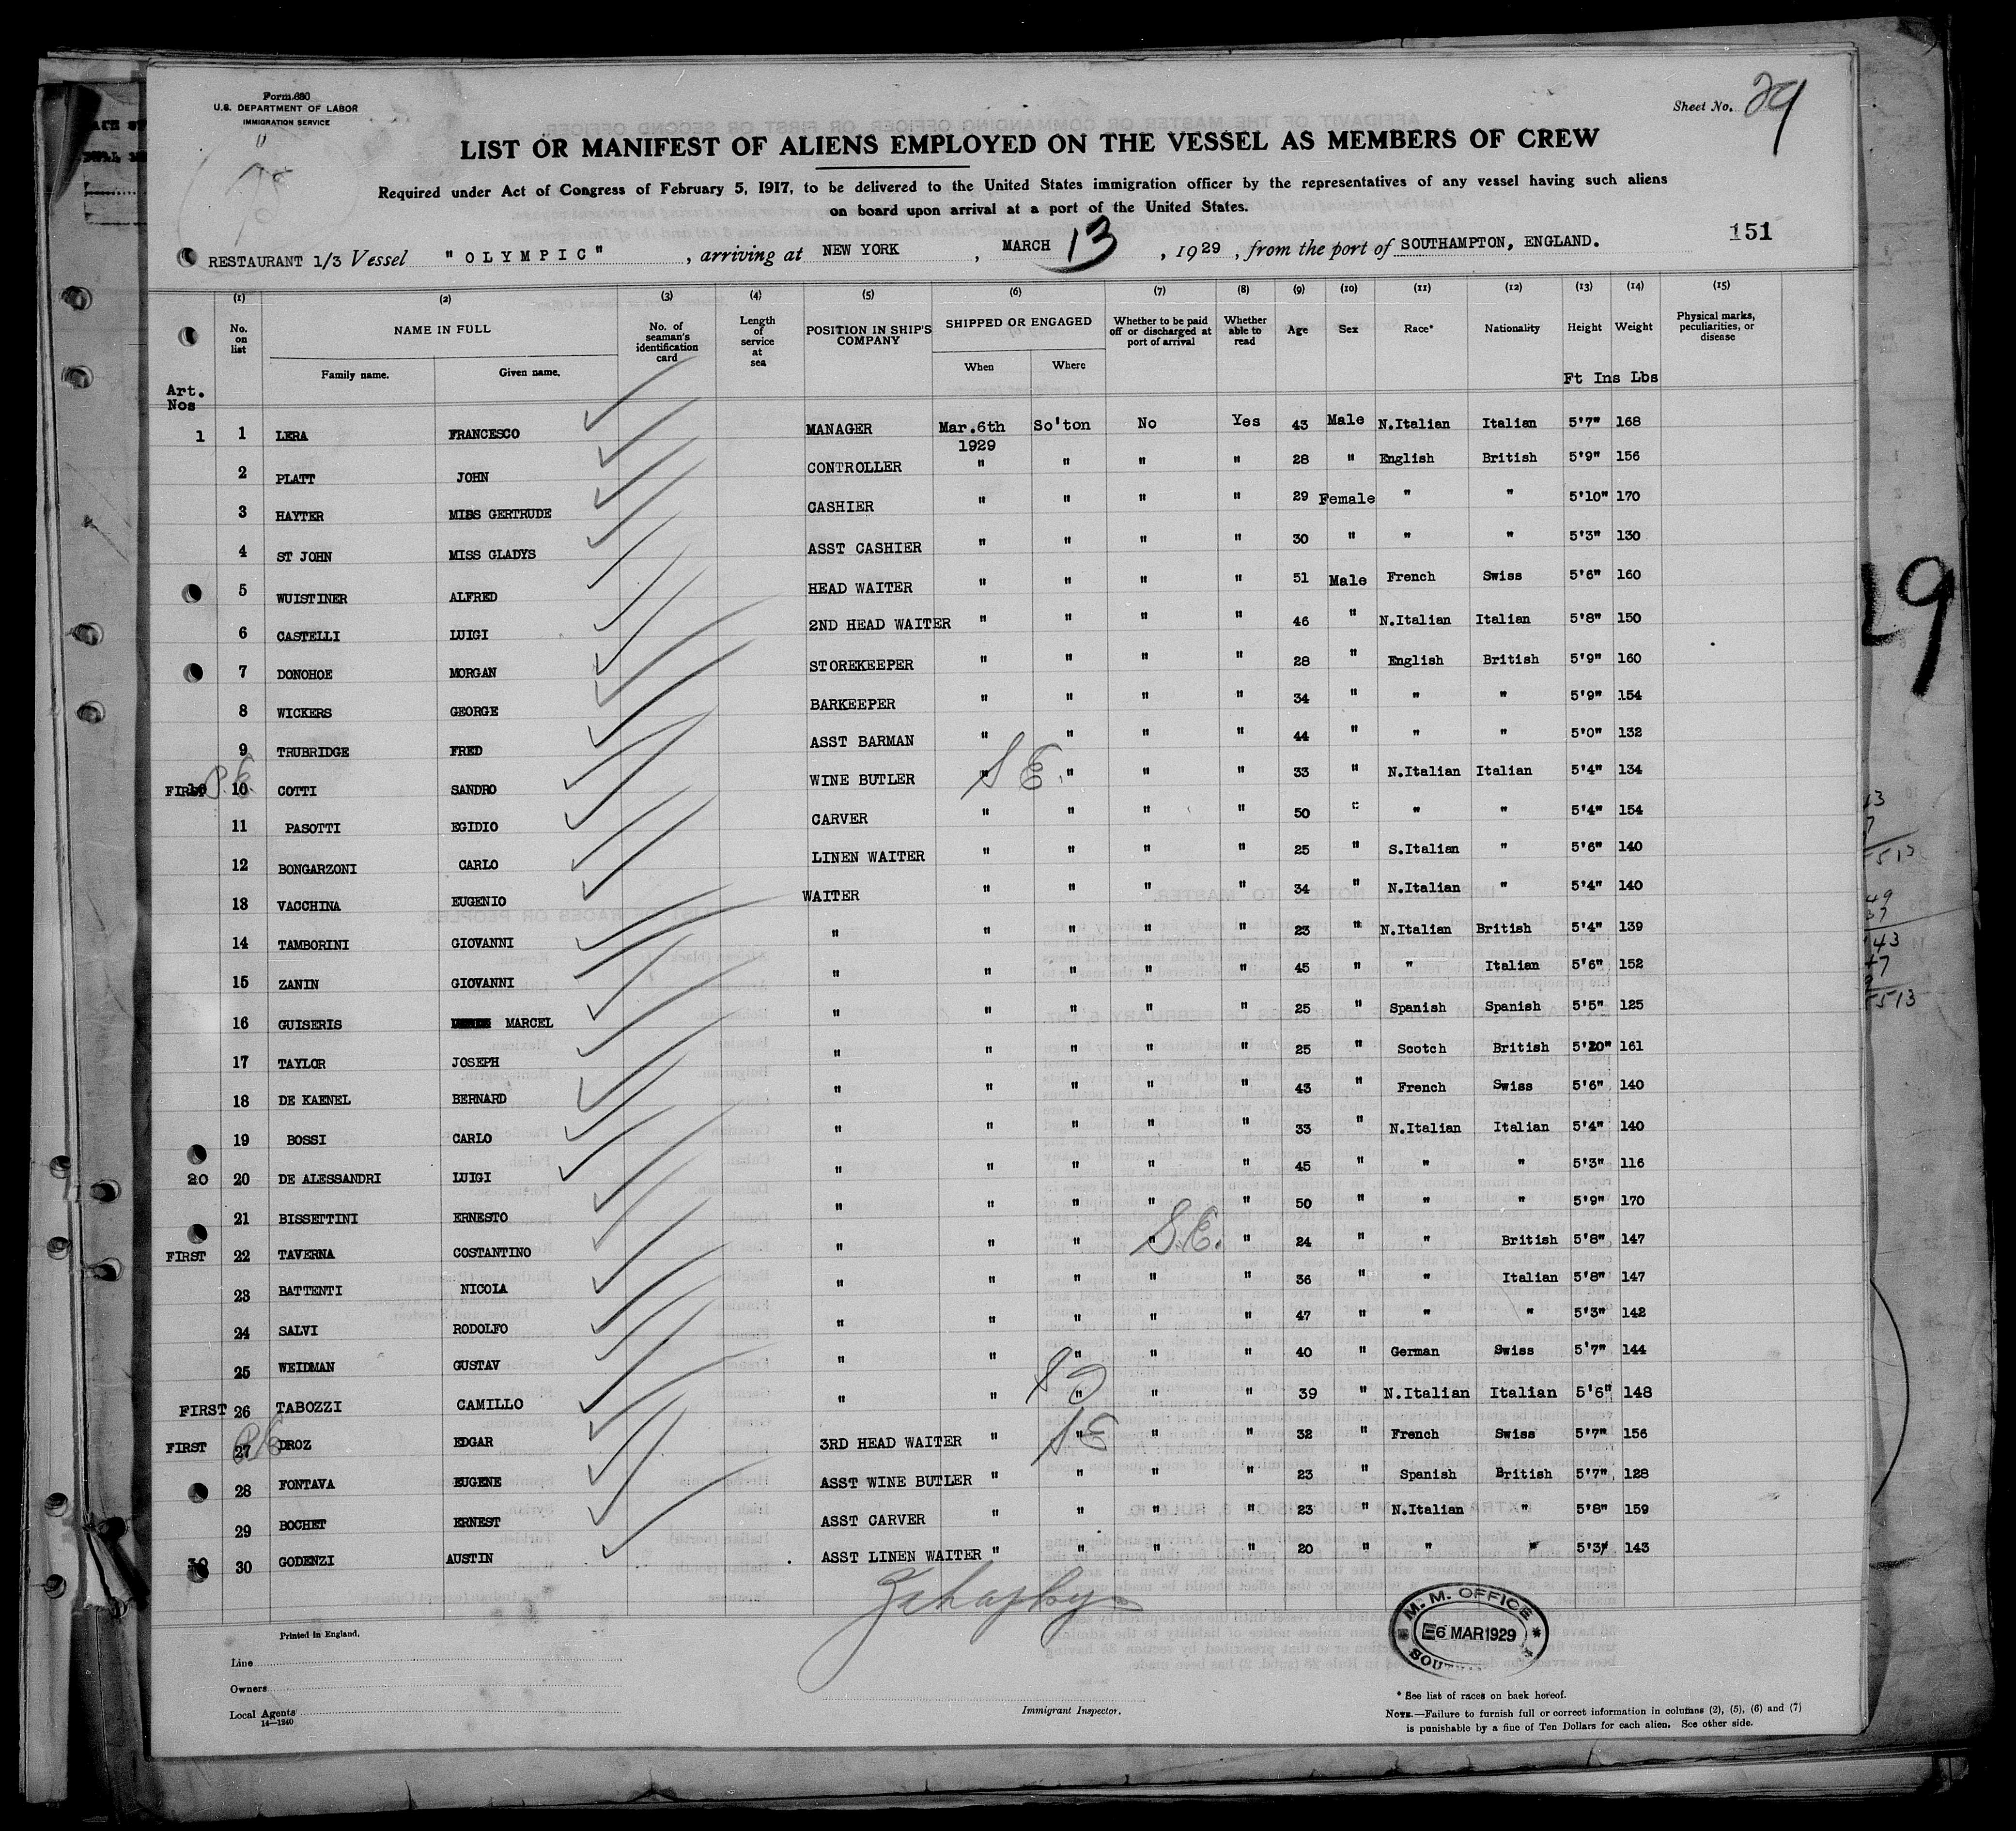 Form 680
U.S. DEPARTMENT OF LABOR
IMMIGRATION SERVICE
Sheet No. 29
LIST OR MANIFEST OF ALIENS EMPLOYED ON THE VESSEL AS MEMBERS OF CREW
Required under Act of Congress of February 5, 1917, to be delivered to the United States immigration officer by the representatives of any vessel having such aliens
on board upon arrival at a port of the United States.
151
RESTAURANT 1/3 Vessel "OLYMPIC", arriving at NEW YORK, MARCH 13, 1929, from the port of SOUTHAMPTON, ENGLAND.
(1) (2) (3) (4) (5) (6) (7) (8) (9) (10) (11) (12) (13) (14) (15)
No. on list NAME IN FULL Family name. Given name. No. of seaman's identification card Length of service at sea POSITION IN SHIP'S COMPANY SHIPPED OR ENGAGED When Where Whether to be paid off or discharged at port of arrival Whether able to read Age Sex Race* Nationality Height Weight Physical marks, peculiarities, or disease
Art. Nos Ft Ins Lbs
1 1 LERA FRANCESCO MANAGER Mar.6th 1929 So'ton No Yes 43 Male N.Italian Italian 5'7" 168
2 PLATT JOHN CONTROLLER " " " " 28 " English British 5'9" 156
3 HAYTER MISS GERTRUDE CASHIER " " " " 29 Female " " 5'10" 170
4 ST JOHN MISS GLADYS ASST CASHIER " " " " 30 " " " 5'3" 130
5 WUISTINER ALFRED HEAD WAITER " " " " 51 Male French Swiss 5'6" 160
6 CASTELLI LUIGI 2ND HEAD WAITER " " " " 46 " N.Italian Italian 5'8" 150
7 DONOHOE MORGAN STOREKEEPER " " " " 28 " English British 5'9" 160
8 WICKERS GEORGE BARKEEPER " " " " 34 " " " 5'9" 154
9 TRUBRIDGE FRED ASST BARMAN " " " " 44 " " " 5'0" 132
FIRST 10 COTTI SANDRO WINE BUTLER " S E. " " " 33 " N.Italian Italian 5'4" 134
11 PASOTTI EGIDIO CARVER " " " " 50 " " " 5'4" 154
12 BONGARZONI CARLO LINEN WAITER " " " " 25 " S.Italian " 5'6" 140
13 VACCHINA EUGENIO WAITER " " " " 34 " N.Italian " 5'4" 140
14 TAMBORINI GIOVANNI " " " " " 23 " N.Italian British 5'4" 139
15 ZANIN GIOVANNI " " " " " 45 " " Italian 5'6" 152
16 GUISERIS MARCEL " " " " " 25 " Spanish Spanish 5'5" 125
17 TAYLOR JOSEPH " " " " " 25 " Scotch British 161
18 DE KAENEL BERNARD " " " " " 43 " French Swiss 5'6" 140
19 BOSSI CARLO " " " " " 33 " N.Italian Italian 5'4" 140
20 20 DE ALESSANDRI LUIGI " " " " " 45 " " " 5'3" 116
21 BISSETTINI ERNESTO " " " " " 50 " " " 5'9" 170
FIRST 22 TAVERNA COSTANTINO " " " " S.E. " 24 " " British 5'8" 147
23 BATTENTI NICOLA " " " " " 36 " " Italian 5'8" 147
24 SALVI RODOLFO " " " " " 47 " " " 5'3" 142
25 WEIDMAN GUSTAV " " " " " 40 " German Swiss 5'7" 144
FIRST 26 TABOZZI CAMILLO " " " " " 39 " N.Italian Italian 5'6" 148
FIRST 27 DROZ EDGAR 3RD HEAD WAITER " S E " " " 32 " French Swiss 5'7" 156
28 FONTAVA EUGENE ASST WINE BUTLER " " " " 23 " Spanish British 5'7" 128
29 BOCHET ERNEST ASST CARVER " " " " 23 " N.Italian " 5'8" 159
30 30 GODENZI AUSTIN ASST LINEN WAITER " " " " 20 " " " 5'3" 143
M. M. OFFICE
6 MAR 1929
Printed in England.
Line
Owners
Local Agents
14—1240
Immigrant Inspector.
* See list of races on back hereof.
NOTE.—Failure to furnish full or correct information in columns (2), (5), (6) and (7)
is punishable by a fine of Ten Dollars for each alien. See other side.